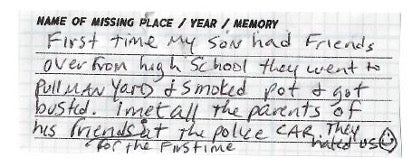 NAME OF MISSING PLACE / YEAR / MEMORY
First time My Son had Friends
over from high School they went to
PullMAN YarD & Smoked pot & got
busted. I met all the parents of
his friends at The police CAR. They hated us ☺
for the Firstime